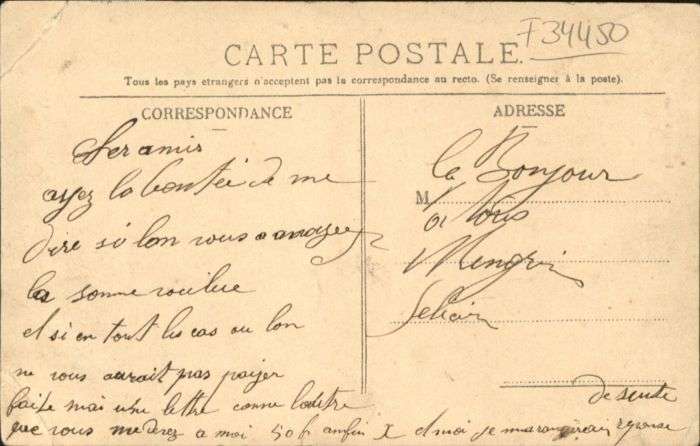 F34450
CARTE POSTALE.
Tous les pays etrangers n'acceptent pas la correspondance au recto. (Se renseigner à la poste).
CORRESPONDANCE
Ser amis
ayez la bontei de me
dire si lon vous a
la somme
et si en tout les cas ou lon
ne vous aurait pas payer
faite mai une lettre comme
que vous me direz a moi 50 f anfin
et moi je
ADRESSE
la Bonjour
M
a tous
de sente